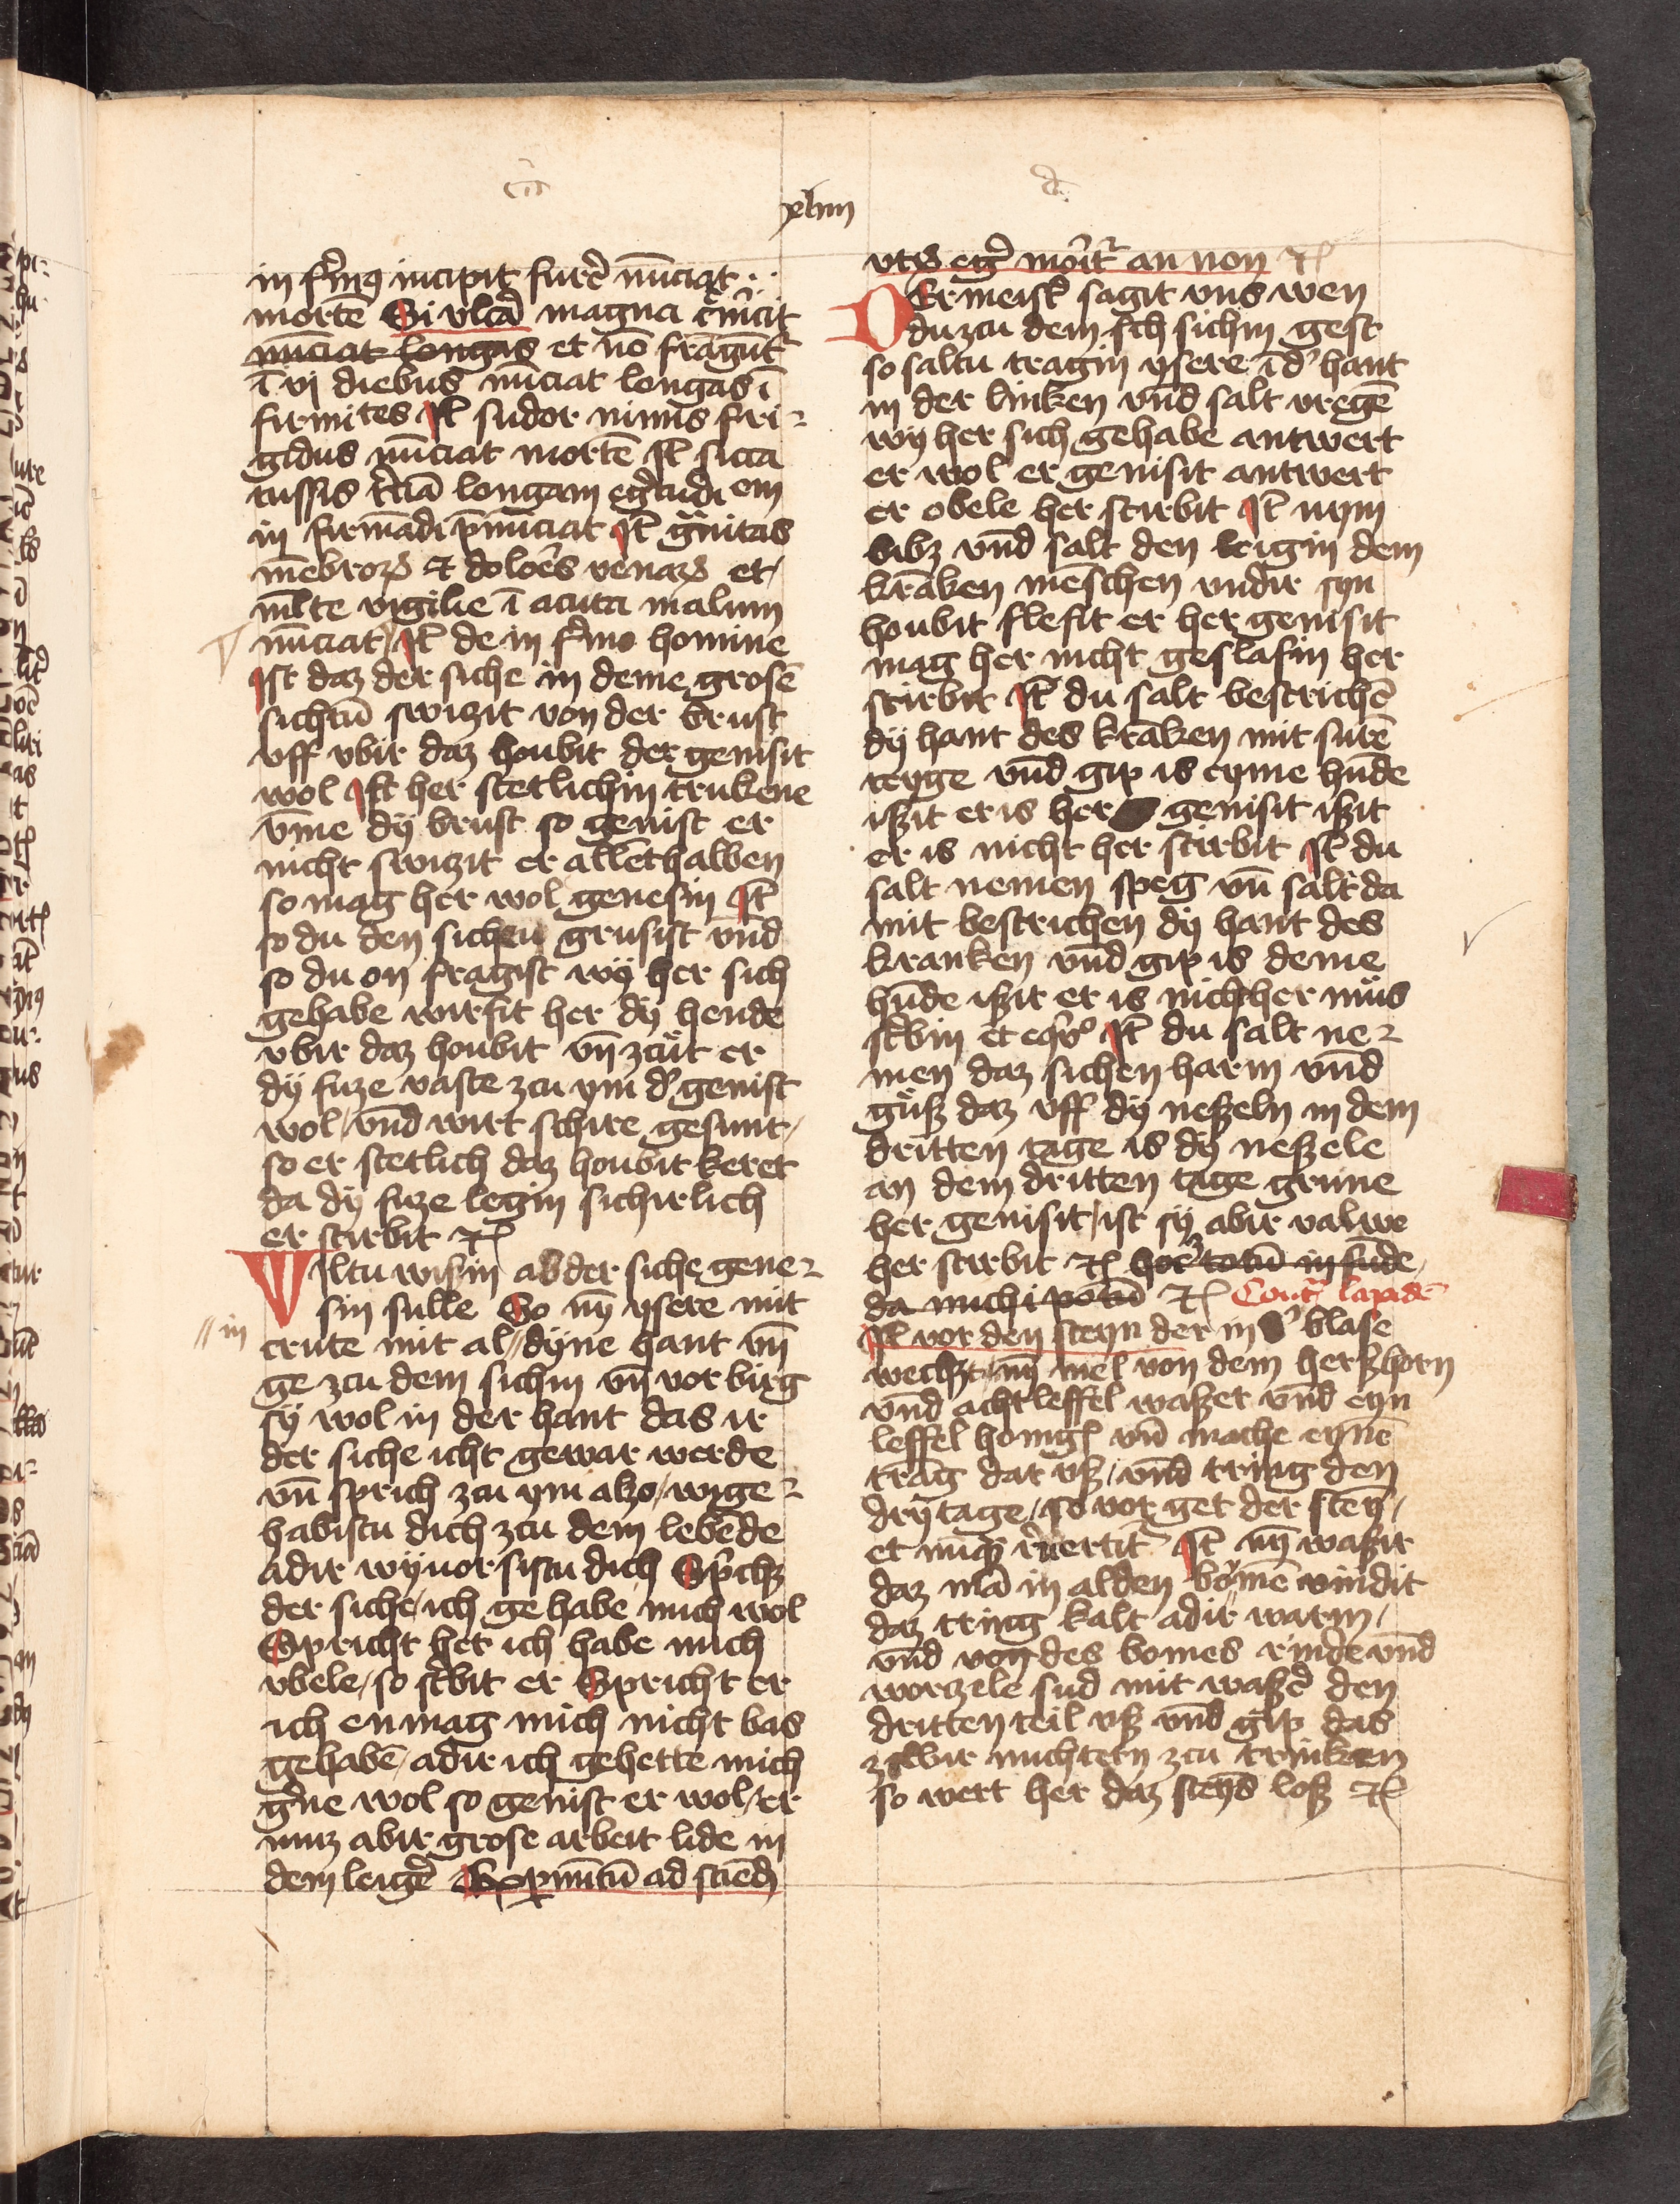 xliiii
in firm9 incipit fure͛ nūciat
mortē Si vlcȧ magna
nūciat longas et nō frāgunt᷑
ī vj diebus nūciat longas ī
firmites Jt̄ sudor nimis fri⸗
gidus nūciat mortē Jt̄ sicca
tussis longam egͥtudi em
in firmādi p̄nūciat Jt̄ gͣuitas
mēbroꝝ et doloēs venaꝝ et
ml̄te vigilie ī acuta malum
nūciat / Jt̄ de in fͥmo homine
Jst daz der siche in deme grosē
sichtū swizit von der brust
vff vbir daz houbit der genisit
wol Jst her stetlichin trukene
vm̄e dÿ brust so genist er
nicht swizit er allēthalben
so mag her wol genesin Jt̄
so du den sichen grusist vnd̄
so du on fragist wÿ her sich
gehabe wirfit her dÿ hende
vbir daz houbit vn̄ zcut er
dÿ fuze vaste zcu ym d' genist
wol / vnd̄ wirt schire gesunt /
so er stetlich daz houbit keret
da dÿ fuze legin sichirlich
er stirbit ⁊c̄
Wiltu wißin ab der siche gene⸗
sin sulle So nȳ ysere mit
// in
crute mit al // dyne hant vn̄
ge zcu dem sichin vn̄ vorbirg
sÿ wol in der hant das ir
der siche icht gewar werde
vn̄ sprich zcu ym alzo / wy ge⸗
habistu dich zcu dem lebēde
adir wy vorsistu dich Sp͛chz
der siche / ich ge habe mich wol
Spricht her ich habe mich
vbele / so st͛bit er Spricht er
ich enmag mich nicht bas
gehabē / adir ich gehette mich
g͛ne wol so genist er wol / er
muz abir grose arbeit lide in
dem leig͛e Expimētū ad sciēdū
vtꝝ eg͛ moͥit᷑ an non ⁊c̄
DEr meist͛ sagit vns wen
du zcu dem sich sichin gest
so saltu tragin ysere ī d' hant
in der linken vnd̄ salt vregē
wÿ her sich gehabe antwert
er wol er genisit antwert
er obele her stirbit Jt̄ nym
bibz vnd̄ salt den leigin dem
krāken mēschen vndir syn
houbit slefit er her genisit
mag her nicht geslafin her
stirbit Jt̄ du salt bestrichē
dÿ hant des krāken mit surē
teyge vnd̄ gip is eyme hūde
ißit er is her genisit ißit
er is nicht her stirbit Jt̄ du
salt nemen speg vn̄ salt da
mit bestrichen dÿ hant des
kranken vnd̄ gip is deme
hūde ißit er is nicht her mus
st͛bin et eqͦuͦ Jt̄ du salt ne⸗
men daz sichen harm vnd̄
guß daz vff dÿ neßeln in dem
dritten tage is dÿ neßele
an dem dritten tage grune
her genisit / ist sÿ abir valwe
her stirbit ⁊c̄ hoc totū in fūde
da michi potū ⁊c̄ Cont͛ lapidē
Jt̄ vor den steyn der in d' blase
wechzt / nȳ mel von dem herßhorn
vnd̄ acht leffel waßer vnd̄ eyn
leffel honigs vn̄ mache eynē
trāg dar vß / vnd̄ tring den
dry tage / so vor get der steÿ /
et nūqȝ reuertit᷑ Jt̄ nȳ waßir
daz mā in alden boymē vindit
daz tring kalt adir warm /
vnd̄ von des bomes rinde vnd̄
worzele sud mit waße͛ den
dritten teil vß vnd̄ gip das
zwir nuchtern zcu trinken
so wert her daz steÿs loß ⁊c̄